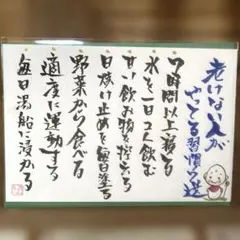 老けない人が
やってる習慣7選
7時間以上寝る
水を一日2L飲む
甘い飲み物を控える
日焼け止めを毎日塗る
野菜から食べる
適度に運動する
毎日湯船に浸かる